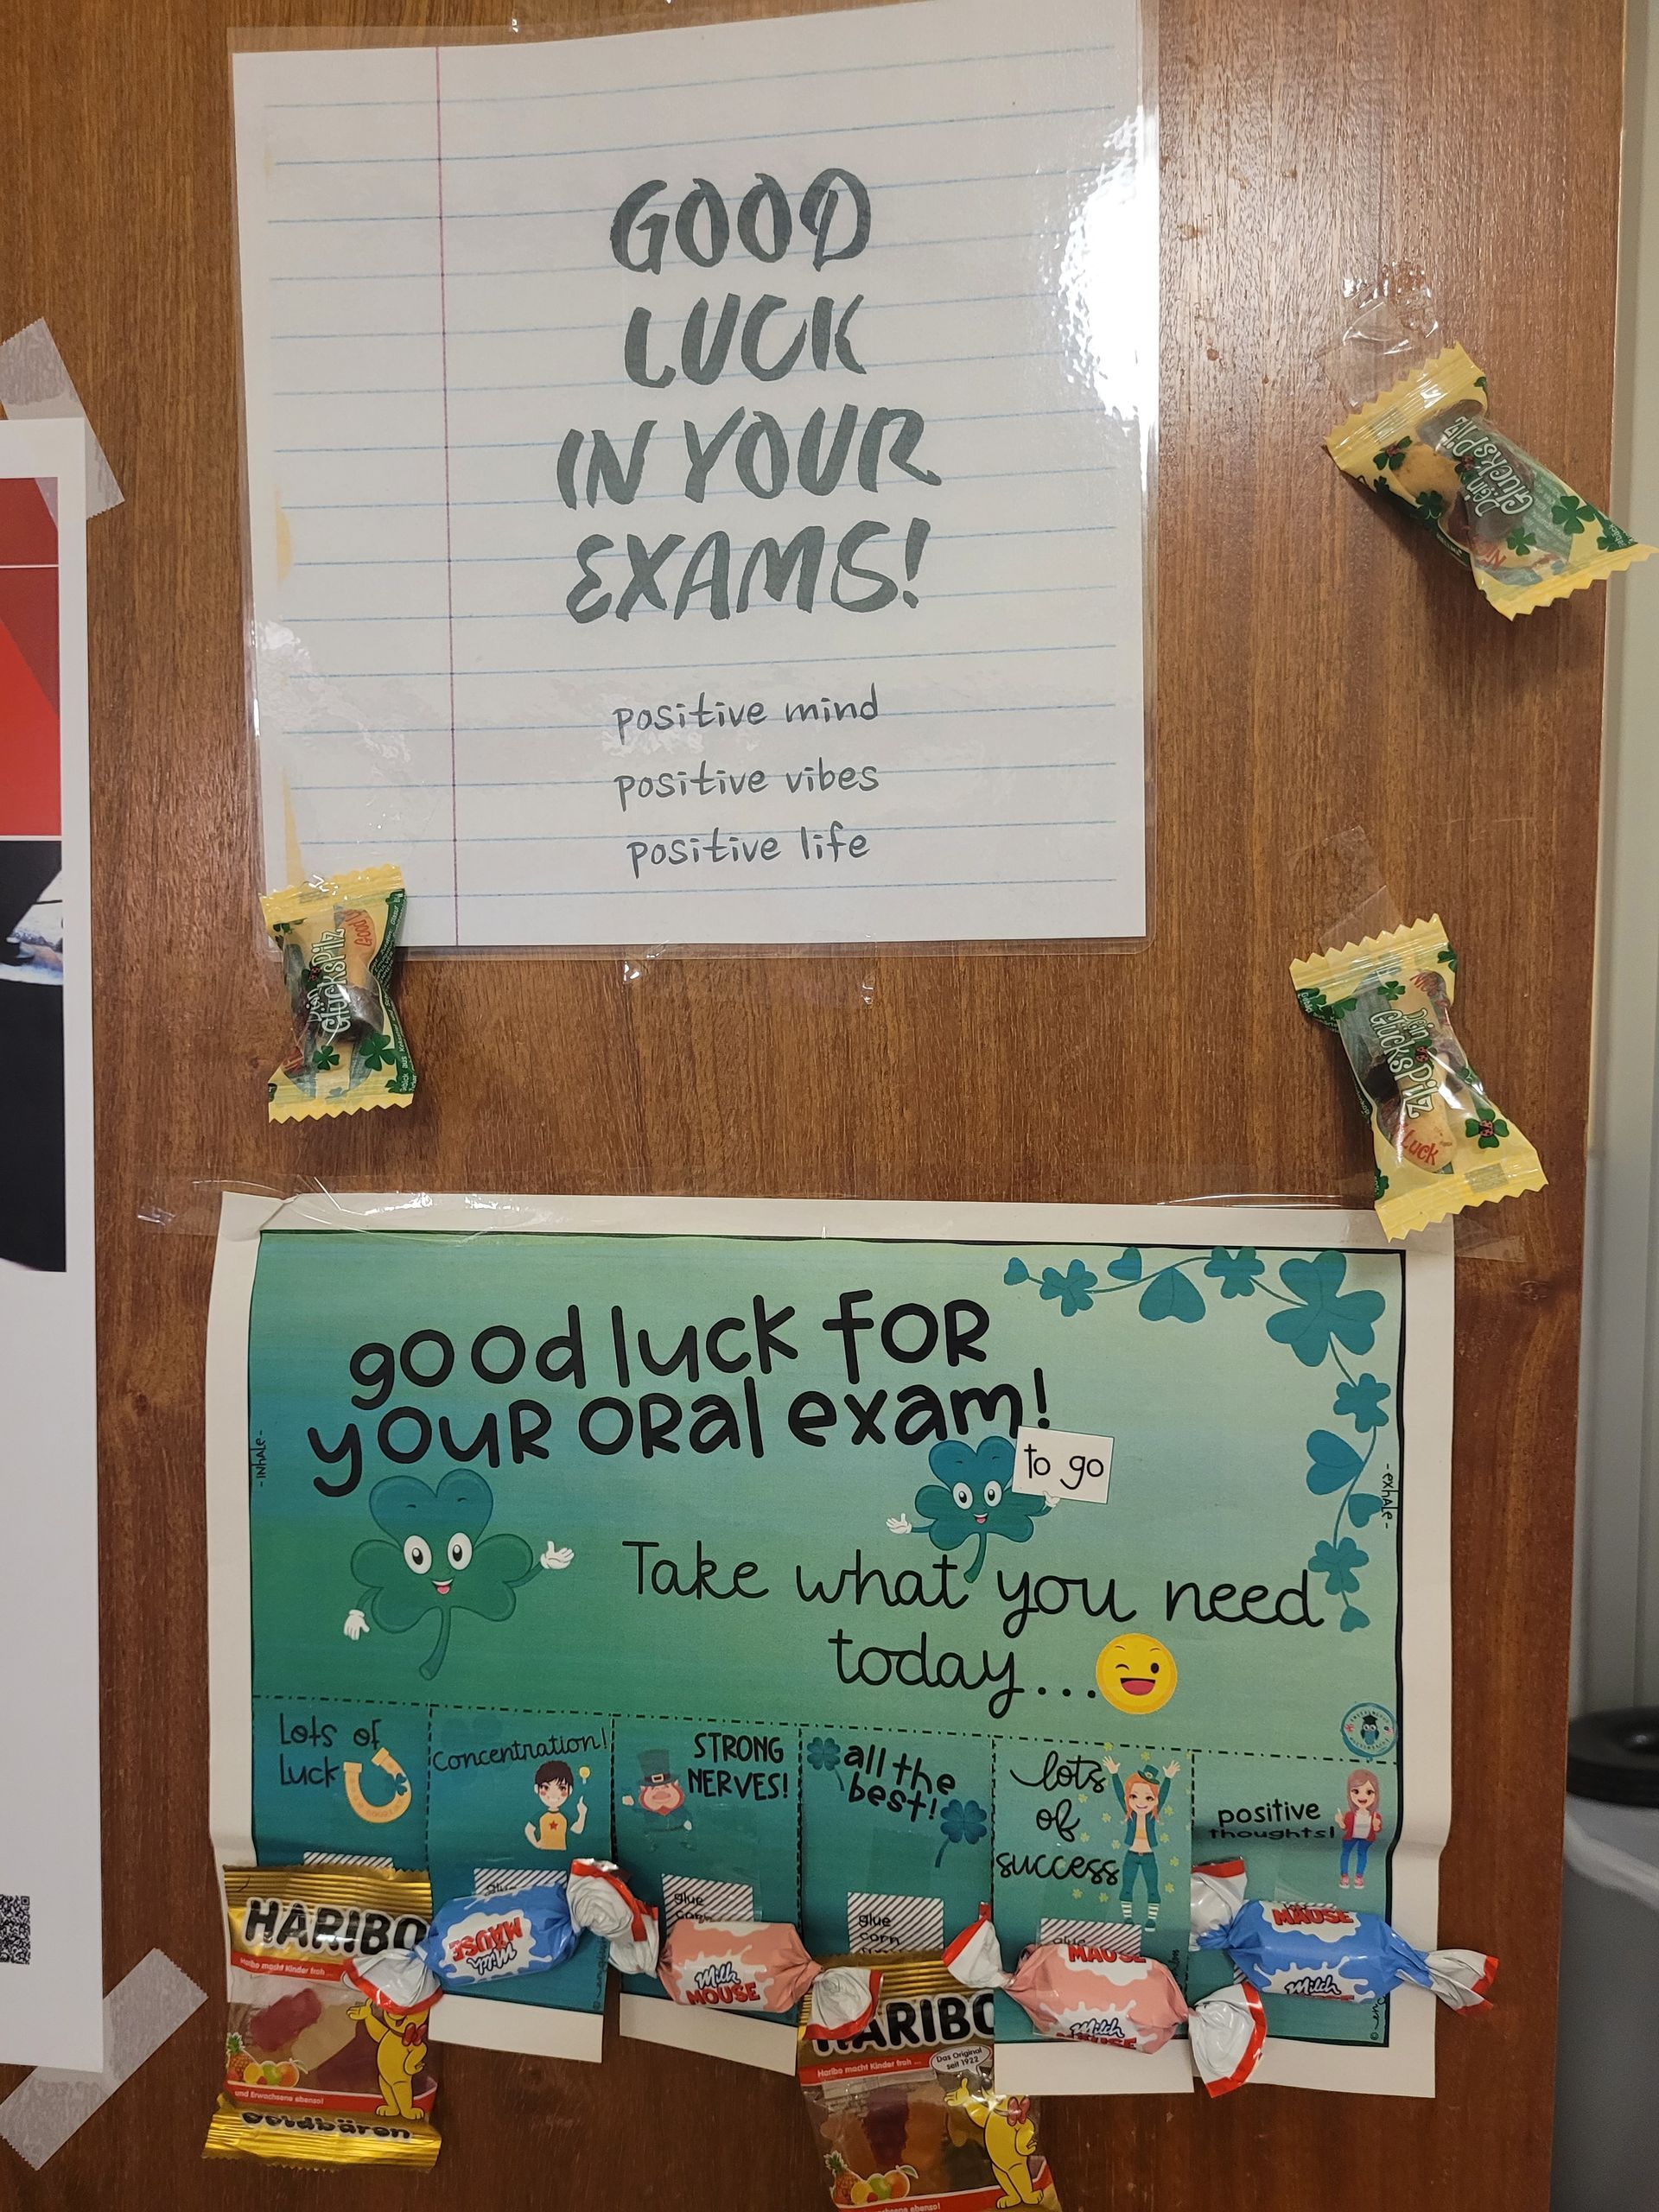 GOOD
LUCK
IN YOUR
EXAMS!
positive mind
positive vibes
positive life
Dein
GlücksPilz
Dein
GlücksPilz
Good
Dein
GlücksPilz
Luck
good luck for
your oral exam!
to go
- INHALE -
- exhale -
Take what you need
today...
Lots of
luck
Concentration!
STRONG
NERVES!
all the
best!
lots
of
success
positive
thoughts!
glue
glue
corn
glue
corn
glue
HARIBO
Haribo macht Kinder froh ...
und Erwachsene ebenso!
Goldbären
MÄUSE
Milch
Milch
MOUSE
HARIBO
Das Original
seit 1922
Haribo macht Kinder froh ...
Erwachsene ebenso!
MÄUSE
Milch
MÄUSE
Milch